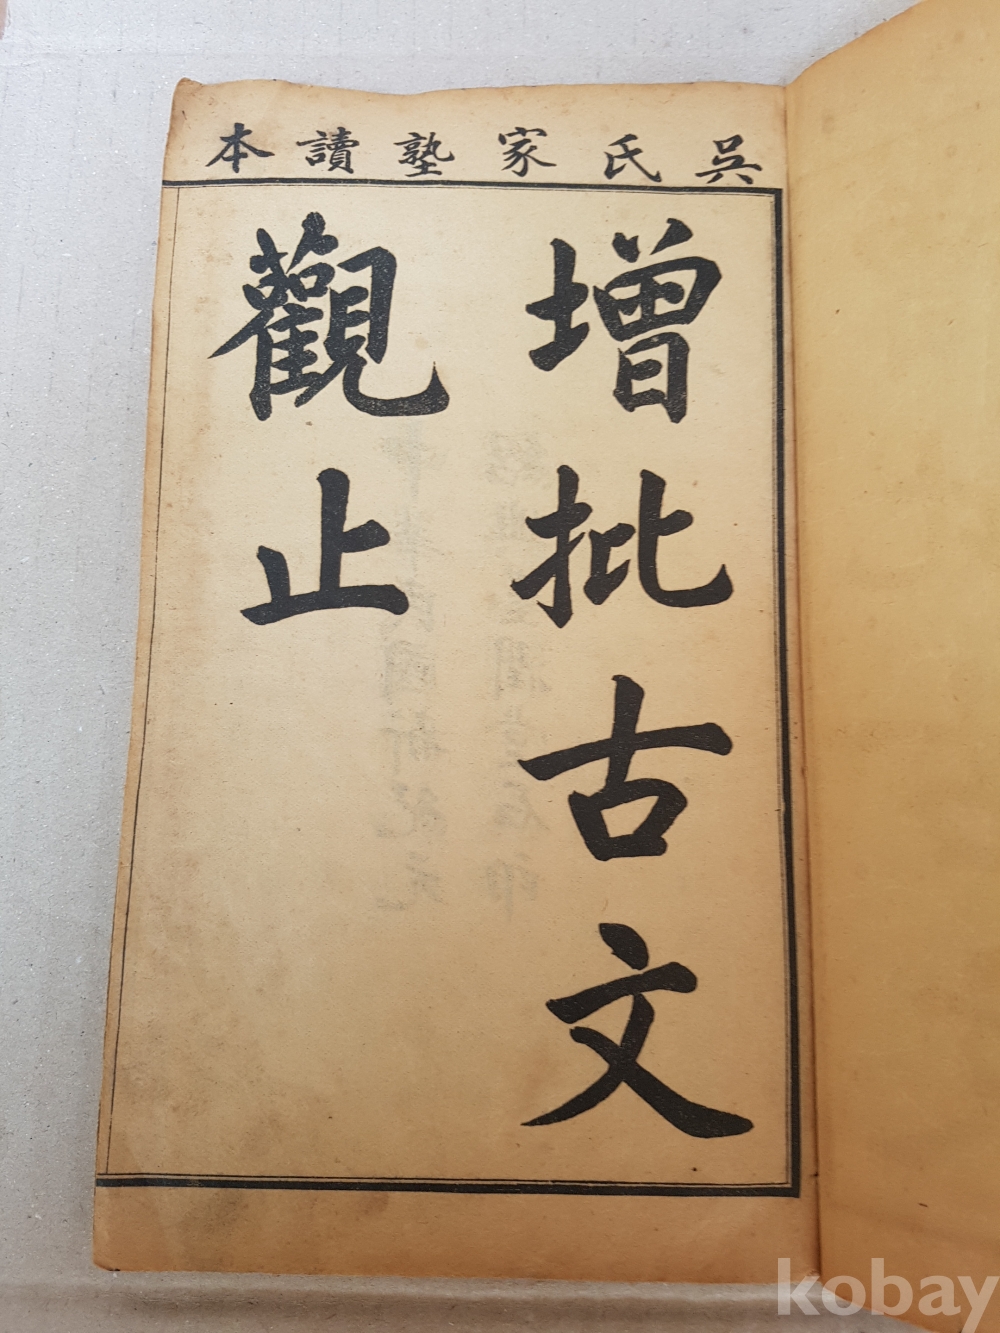 吳氏家塾讀本
增批古文
觀止
kobay